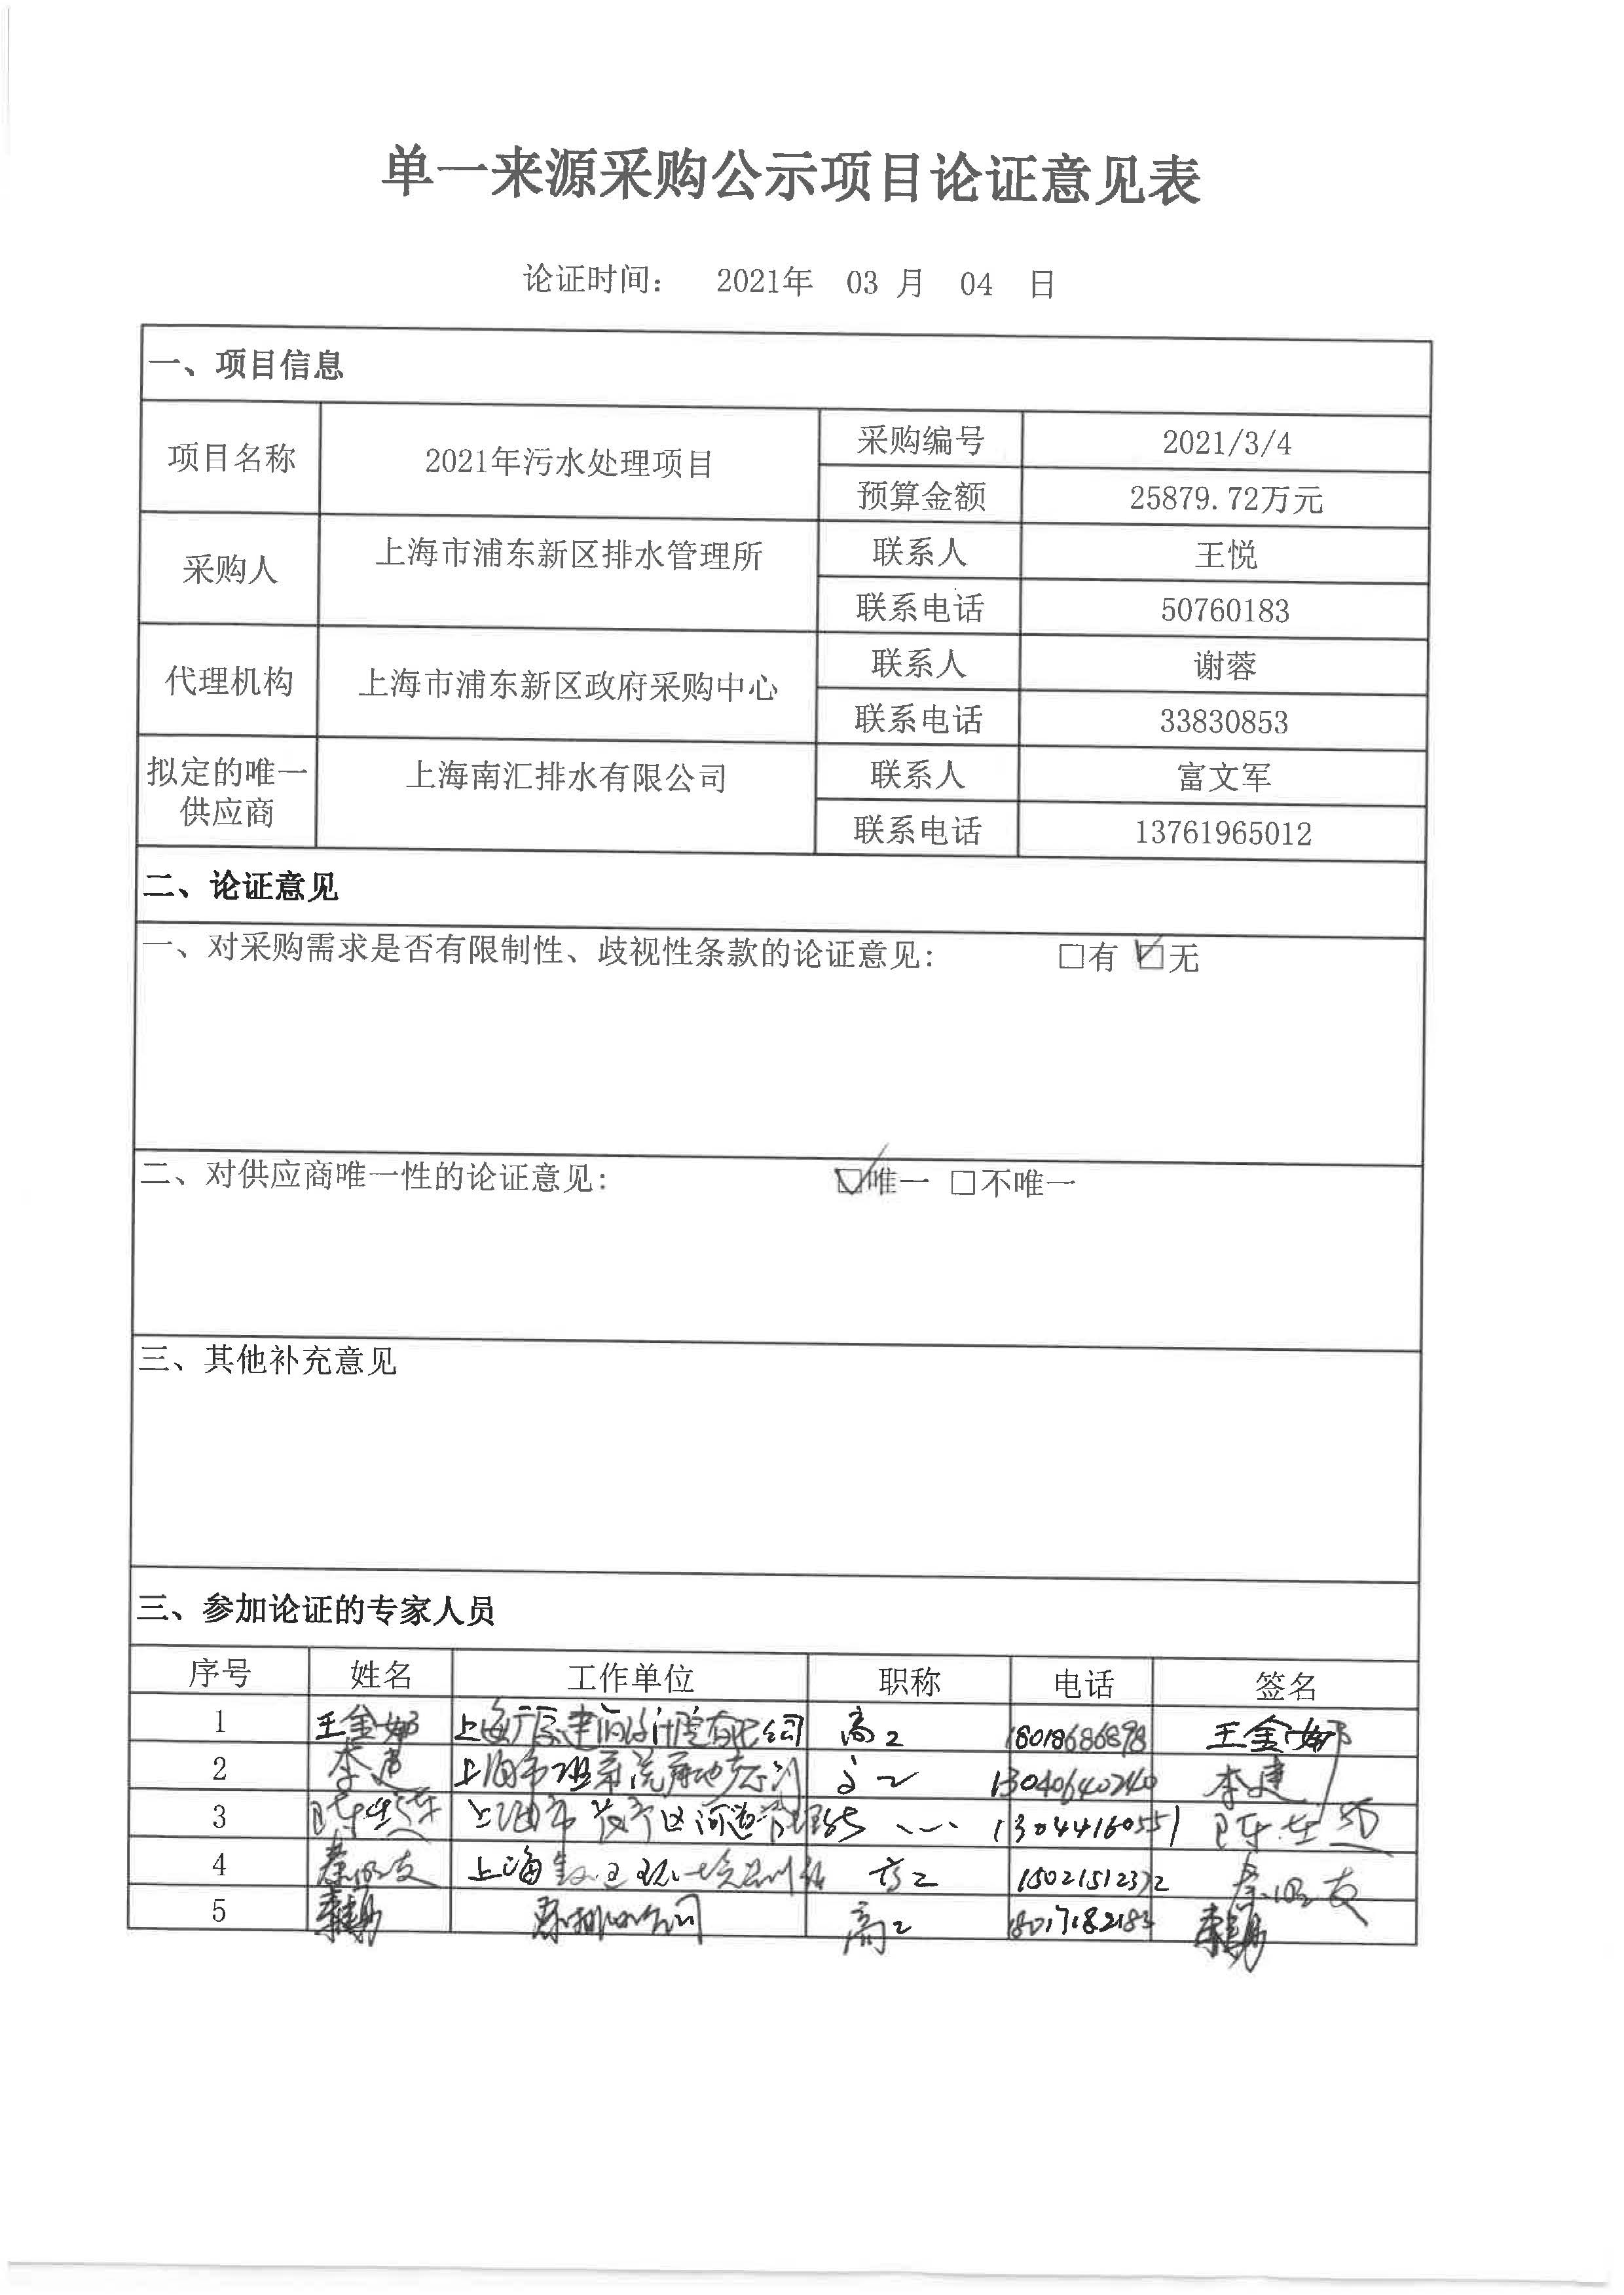 单一来源采购公示项目论证意见表
论证时间： 2021年 03 月 04 日
一、项目信息
项目名称 2021年污水处理项目 采购编号 2021/3/4
预算金额 25879.72万元
采购人 上海市浦东新区排水管理所 联系人 王悦
联系电话 50760183
代理机构 上海市浦东新区政府采购中心 联系人 谢蓉
联系电话 33830853
拟定的唯一供应商 上海南汇排水有限公司 联系人 富文军
联系电话 13761965012
二、论证意见
一、对采购需求是否有限制性、歧视性条款的论证意见： □有 ☑无
二、对供应商唯一性的论证意见： ☑唯一 □不唯一
三、其他补充意见
三、参加论证的专家人员
序号 姓名 工作单位 职称 电话 签名
1 王金娜 上海 有限公司 高工 18018686898 王金娜
2 李建 上海市 13040640240 李建
3 上海市 区河道管理所 13044160551
4 上海 高工 15021512372
5 高工